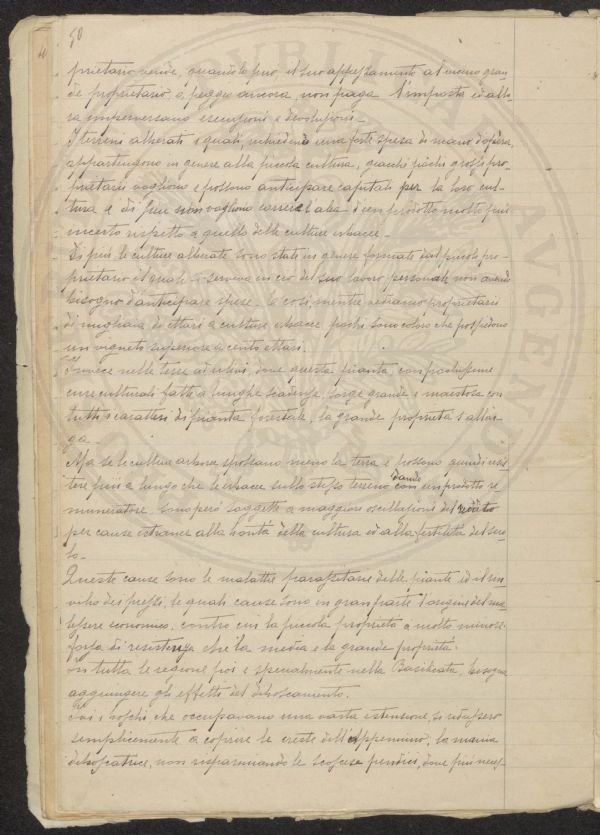 50
prietario vende, quando lo può, il suo appezzamento al meno gran-
de proprietario, o, peggio ancora, non paga l'imposta ed allo-
ra imperversano esecuzioni e devoluzioni.-
I terreni alberati i quali, richiedendo una forte spesa di mano d'opera,
appartengono in genere alla piccola cultura, giacchè pochi grossi pro-
prietarii vogliono e possono anticipare capitali per la loro cul-
tura e di più non vogliono correre l'alea di un prodotto molto più
incerto rispetto a quello delle culture erbacee.-
Di più le culture alberate sono state in genere formate dal piccolo pro-
prietario il quale si serviva in ciò del suo lavoro personale non avendo
bisogno d'anticipare spese - e così, mentre vediamo proprietarii
di migliaia di ettari a culture erbacee pochi sono coloro che posseggono
un vigneto superiore a cento ettari.
Invece nelle terre ad ulivi, dove questa pianta, con pochissime
cure culturali fatte a lunghe scadenze, sorge grande e maestosa con
tutti i caratteri di pianta forestale, la grande proprietà s'allar-
ga.
Ma se le culture arboree spossano meno la terra e possono quindi resi-
stere più a lungo che le erbacee sullo stesso terreno dando un prodotto re-
muneratore, sono però soggette a maggiori oscillazioni del reddito
per cause estranee alla bontà della cultura ed alla fertilità del suo-
lo.
Queste cause sono le malattie parassitarie delle piante ed il rin-
vilio dei prezzi, le quali cause sono in gran parte l'origine del ma-
lessere economico, contro cui la piccola proprietà a molto minore
forza di resistenza che la media e la grande proprietà.
In tutta la regione poi e specialmente nella Basilicata, bisogna
aggiungere gli effetti del diboscamento.
Poi i boschi, che occupavano una vasta estensione, si ridussero
semplicemente a coprire le creste dell'Appennino, la mania
diboscatrice, non risparmiando le scoscese pendici, dove più neces-